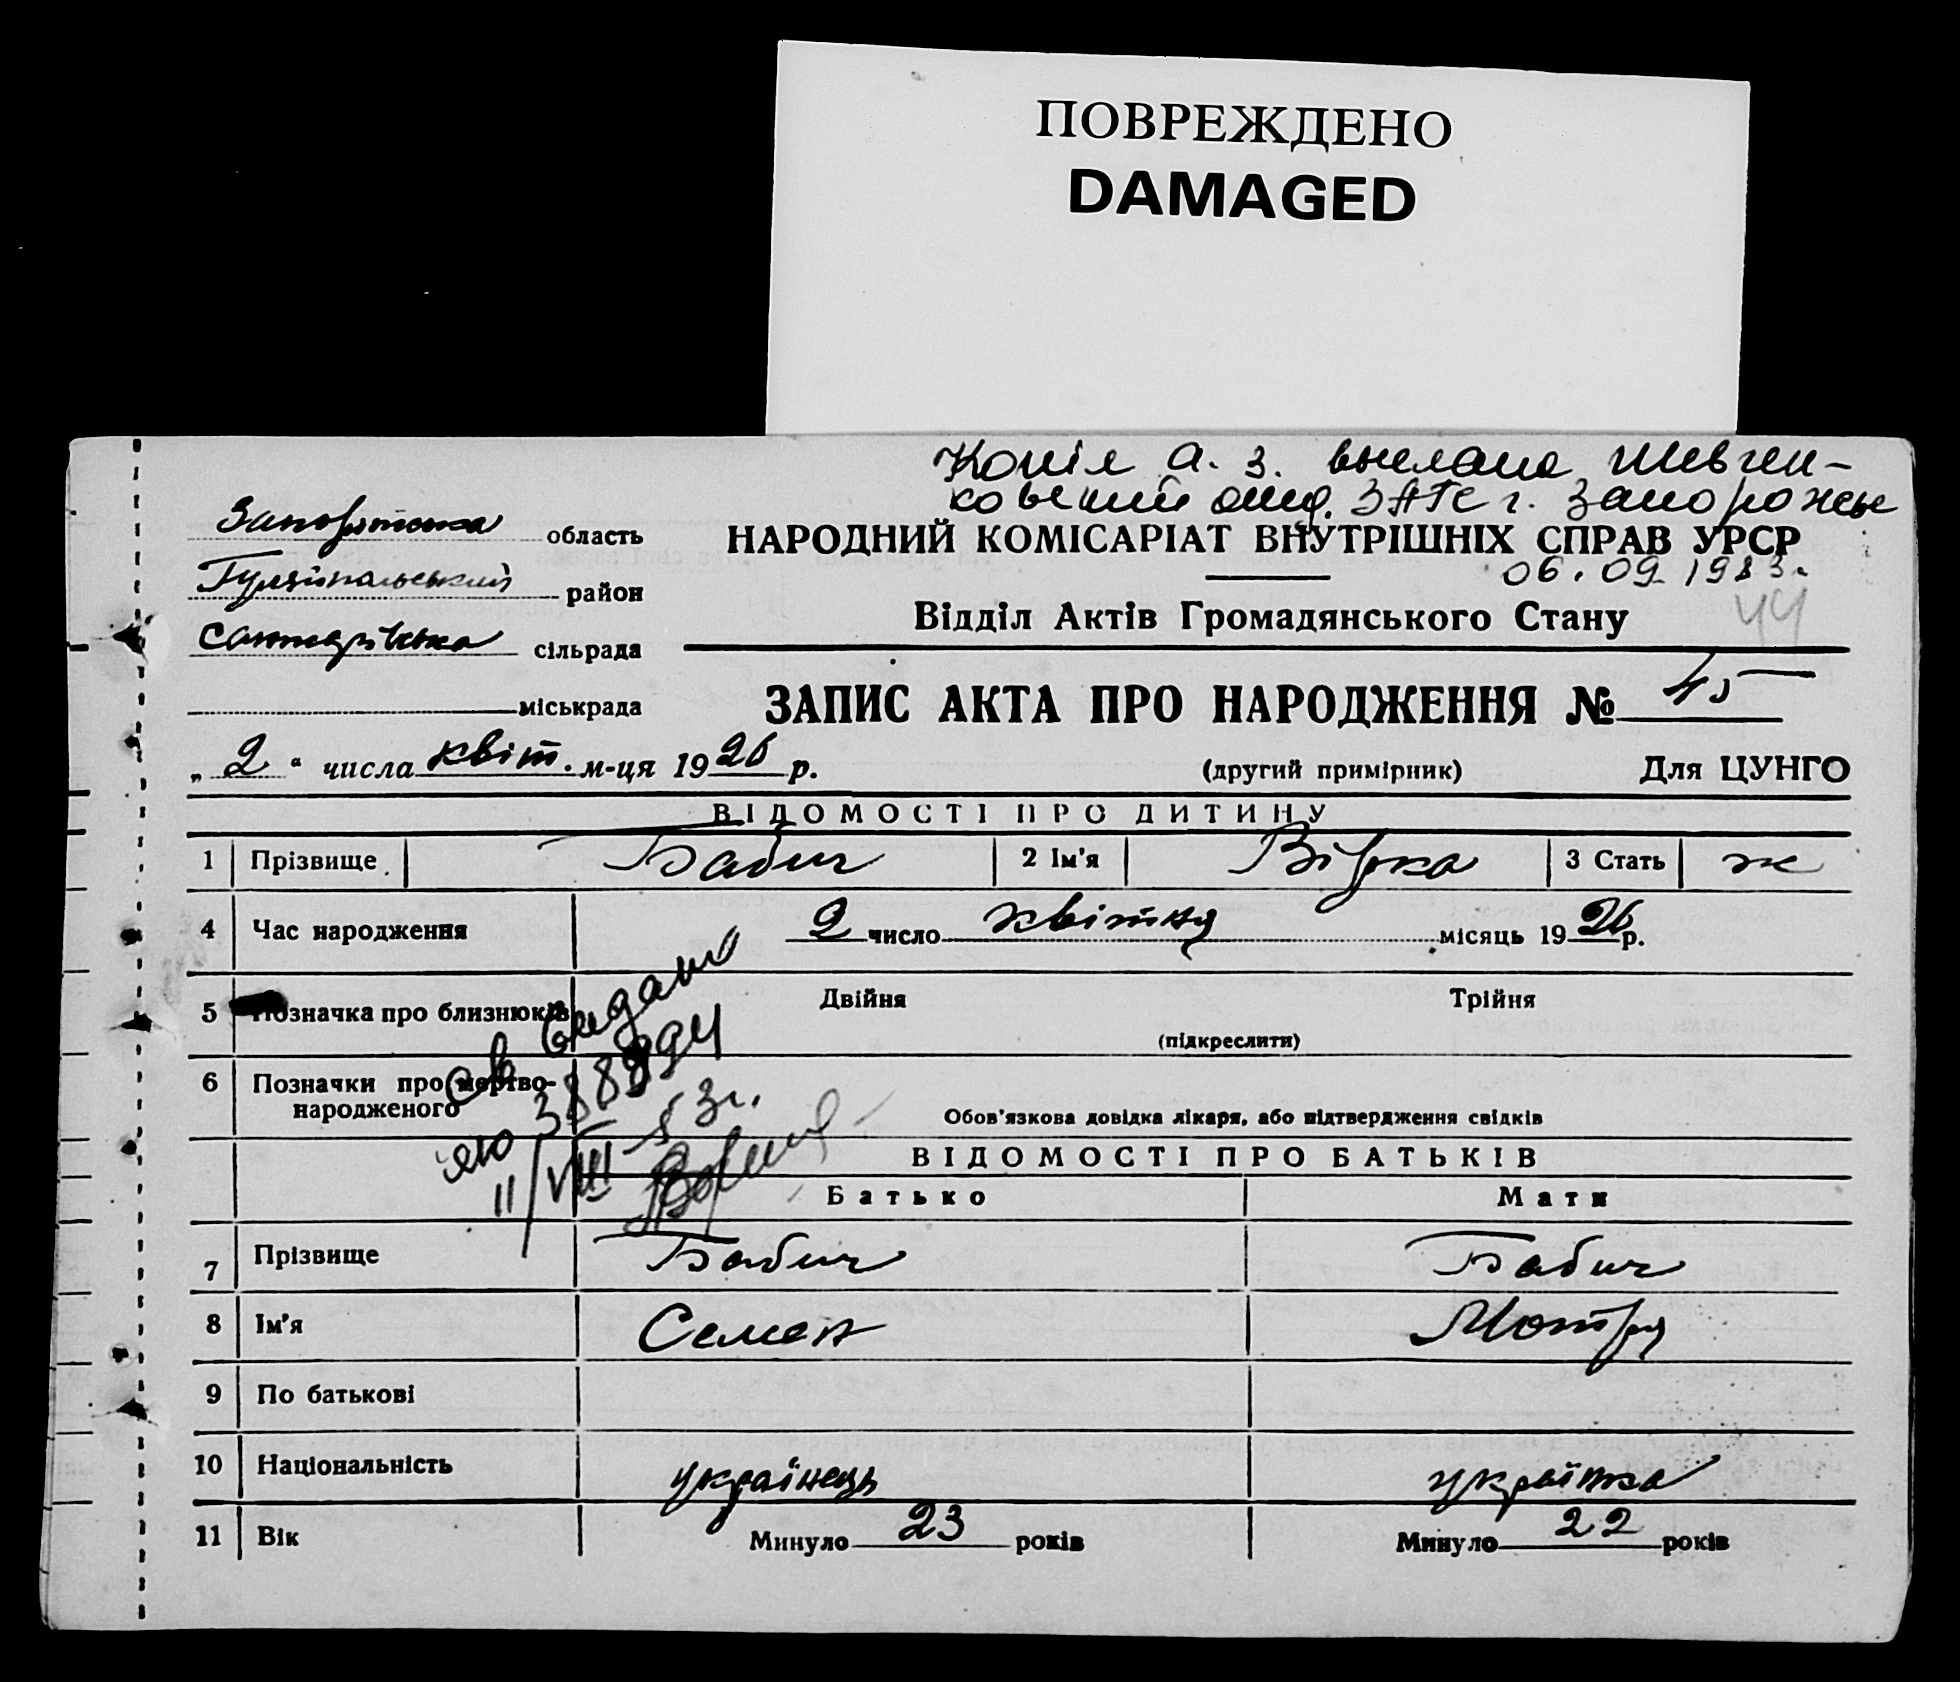 ПОВРЕЖДЕНО
DAMAGED
Копія а. з. выслана Шевчен-
ковський отд. ЗАГС г. Запорожье
06.09.1983.
44
Запорізська область
Гуляйпольський район
сільрада
міськрада
НАРОДНИЙ КОМІСАРІАТ ВНУТРІШНІХ СПРАВ УРСР
Відділ Актів Громадянського Стану
ЗАПИС АКТА ПРО НАРОДЖЕННЯ № 45
„ 2 “ числа квіт. м-ця 1926 р.
(другий примірник) Для ЦУНГО
ВІДОМОСТІ ПРО ДИТИНУ
1 Прізвище Бабич 2 Ім'я Вірка 3 Стать ж
4 Час народження 2 число квітня місяць 1926 р.
5 Позначка про близнюків Двійня Трійня
(підкреслити)
6 Позначки про мертво-
народженого
Обов'язкова довідка лікаря, або підтвердження свідків
св видано
ЯЮ
11/VIII-53г.
ВІДОМОСТІ ПРО БАТЬКІВ
Батько Мати
7 Прізвище Бабич Бабич
8 Ім'я Семен Мотря
9 По батькові
10 Національність українець українка
11 Вік Минуло 23 років Минуло 22 років